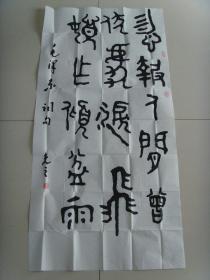 忽報人間曾
伏虎淚飛
頓作傾盆雨
毛澤东詞句